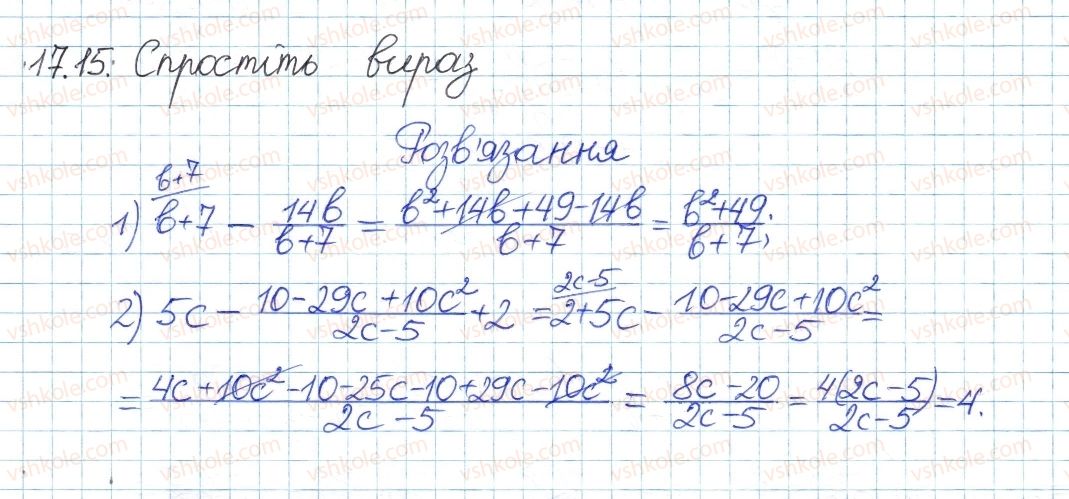 17.15. Спростіть вираз
Розв'язання
1) b+7 (b+7) - 14b/(b+7) = (b²+14b+49-14b)/(b+7) = (b²+49)/(b+7);
2) 5c - (10-29c+10c²)/(2c-5) + 2 = 2+5c (2c-5) - (10-29c+10c²)/(2c-5) =
= (4c+10c²-10-25c-10+29c-10c²)/(2c-5) = (8c-20)/(2c-5) = 4(2c-5)/(2c-5) = 4.
vshkole.com